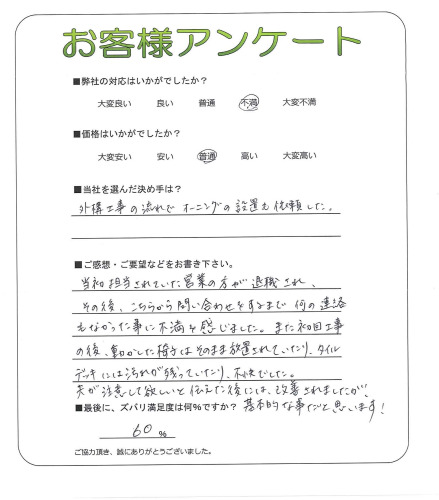 お客様アンケート
■弊社の対応はいかがでしたか？
大変良い 良い 普通 不満 大変不満
■価格はいかがでしたか？
大変安い 安い 普通 高い 大変高い
■当社を選んだ決め手は？
外構工事の流れで オーニングの設置も依頼した。
■ご感想・ご要望などをお書き下さい。
当初担当されていた営業の方が退職され、
その後、こちらから問い合わせをするまで何の連絡
もなかった事に不満を感じました。また初回工事
の後、動かした椅子はそのまま放置されていたり、タイル
デッキには汚れが残っていたり、不快でした。
夫が注意して欲しいと伝えた後には、改善されましたが、
■最後に、ズバリ満足度は何%ですか？ 基本的な事だと思います！
60 %
ご協力頂き、誠にありがとうございました。